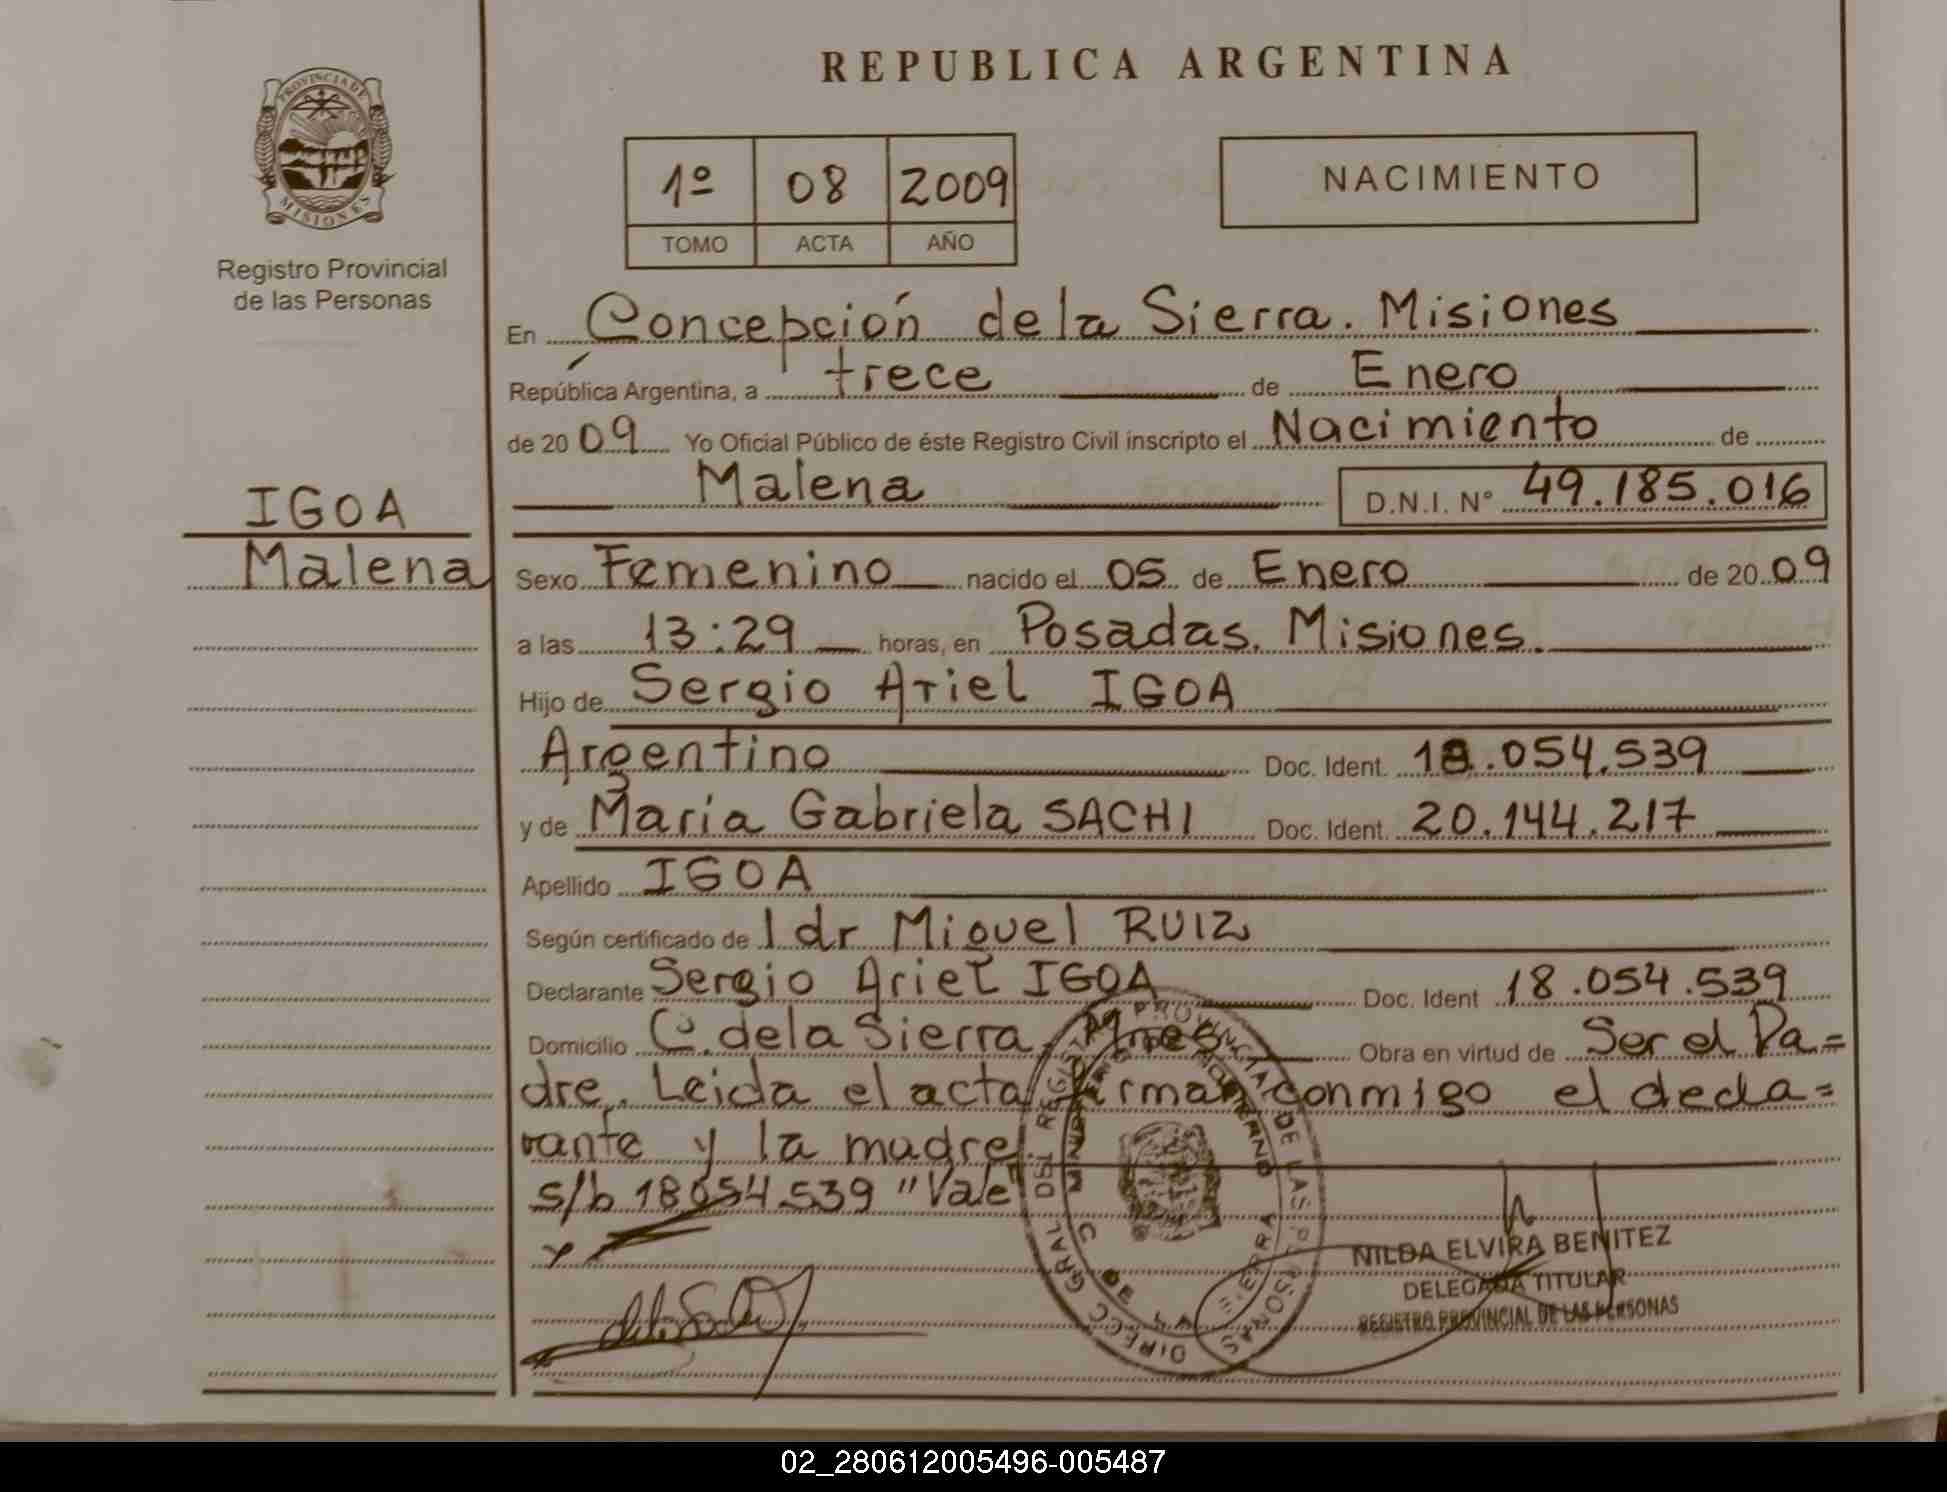 REPUBLICA ARGENTINA
PROVINCIA DE
MISIONES
Registro Provincial
de las Personas
1º 08 2009
TOMO ACTA AÑO
NACIMIENTO
En Concepción de la Sierra. Misiones
República Argentina, a trece de Enero
de 2009 Yo Oficial Público de éste Registro Civil inscripto el Nacimiento de
Malena D.N.I. N° 49.185.016
IGOA
Malena
Sexo Femenino nacido el 05 de Enero de 2009
a las 13:29 horas, en Posadas. Misiones.
Hijo de Sergio Ariel IGOA
Argentino Doc. Ident. 18.054.539
y de María Gabriela SACHI Doc. Ident. 20.144.217
Apellido IGOA
Según certificado de l dr Miguel RUIZ
Declarante Sergio Ariel IGOA Doc. Ident 18.054.539
Domicilio C. de la Sierra. Mnes Obra en virtud de Ser el Pa=
dre. Leida el acta firman conmigo el decla=
rante y la madre.
s/b 18054.539 "Vale"
DIRECC GRAL DEL REGISTRO PROVINCIAL DE LAS PERSONAS
NILDA ELVIRA BENITEZ
DELEGADA TITULAR
REGISTRO PROVINCIAL DE LAS PERSONAS
02_280612005496-005487